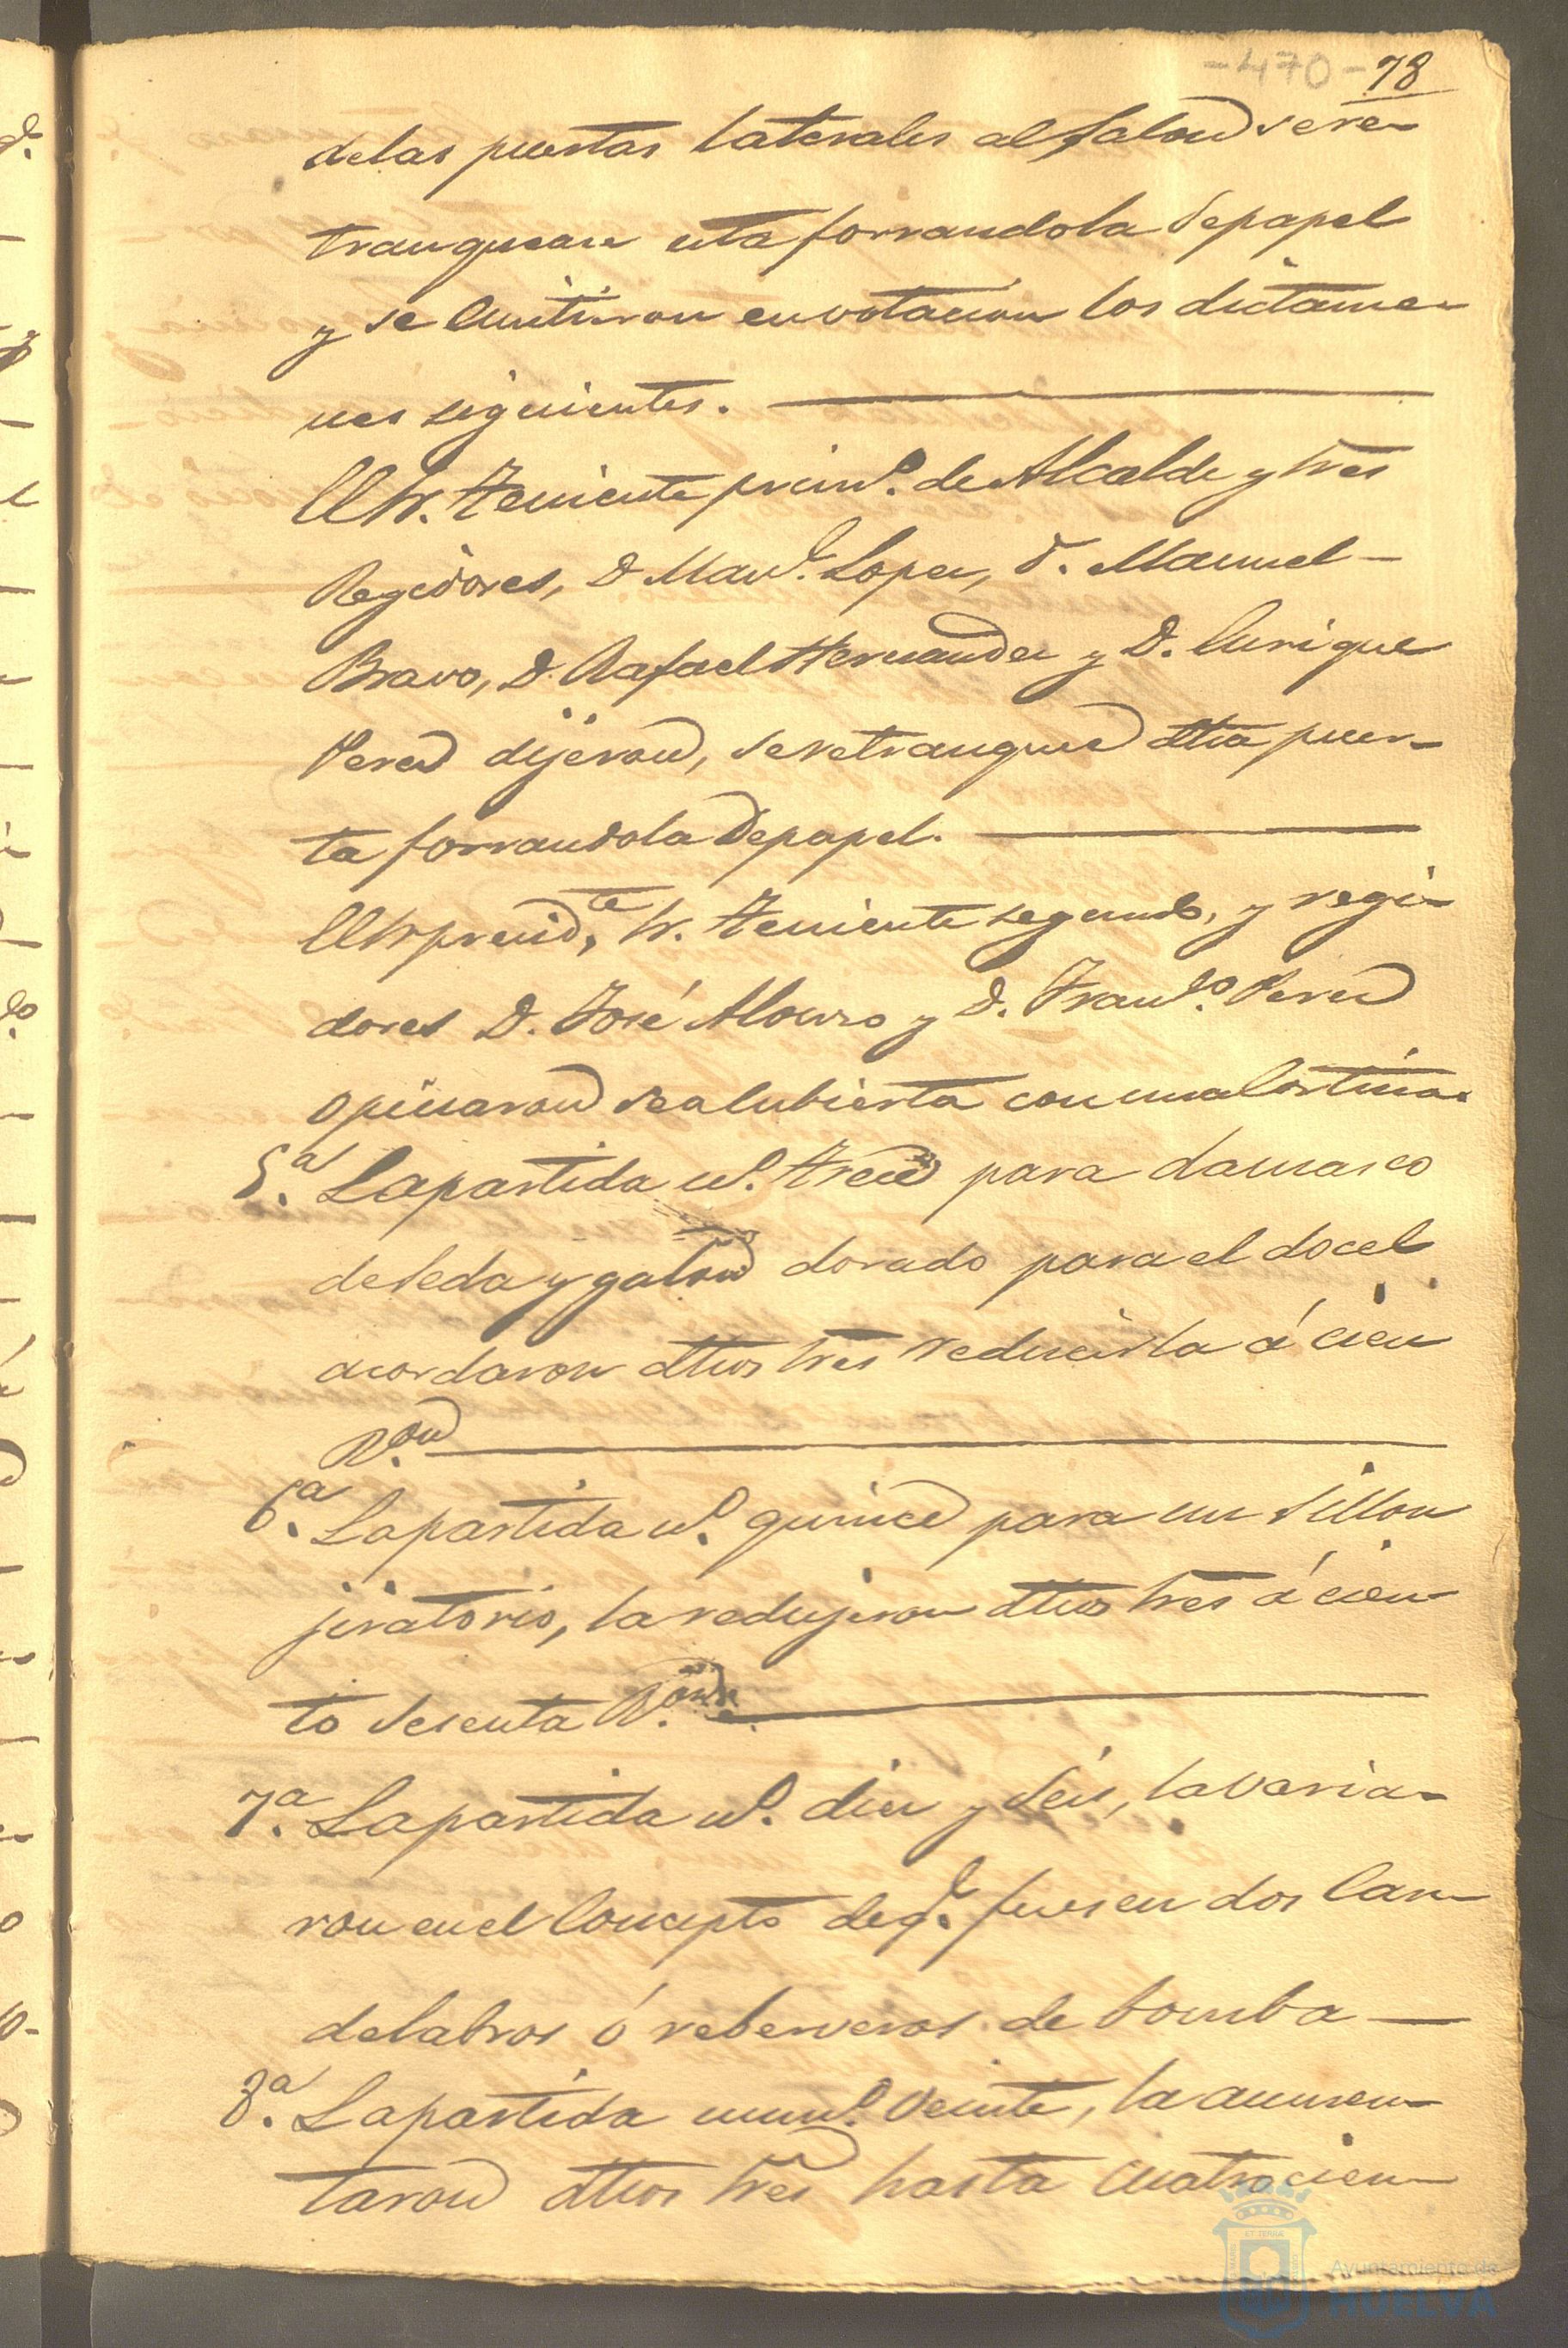 -470- 78
de las puertas laterales al salon se re-
tranqueare esta forrandola de papel
y se emitieron en votacion los dictame-
nes siguientes.
El Sr. Teniente prim.º de Alcalde y tres
Regidores, D Man.l Lopez, D. Manuel
Bravo, D. Rafael Hernandez y D. Enrique
Perez dijeron, se retranquee dha puer-
ta forrandola de papel.
El Sr presid.te, Sr. Teniente segundo, y regi-
dores D. José Alonso y D. Fran.co Perez
opinaron sea cubierta con una Cortina.
5.a La partida n.º trece para damasco
de seda y galon dorado para el docel
acordaron dhos Sres reducirla á cien
R.on
6.a La partida n.º quince para un sillon
jiratorio, la redujeron dhos Sres á cien-
to sesenta R.on
7.a La partida n.º diez y seis, la varia-
ron en el Concepto de q.e fuesen dos Can-
delabros ó reberveros de bomba
8.a La partida num.º veinte, la aumen-
taron dhos Sres hasta cuatrocien-
Ayuntamiento de
HUELVA